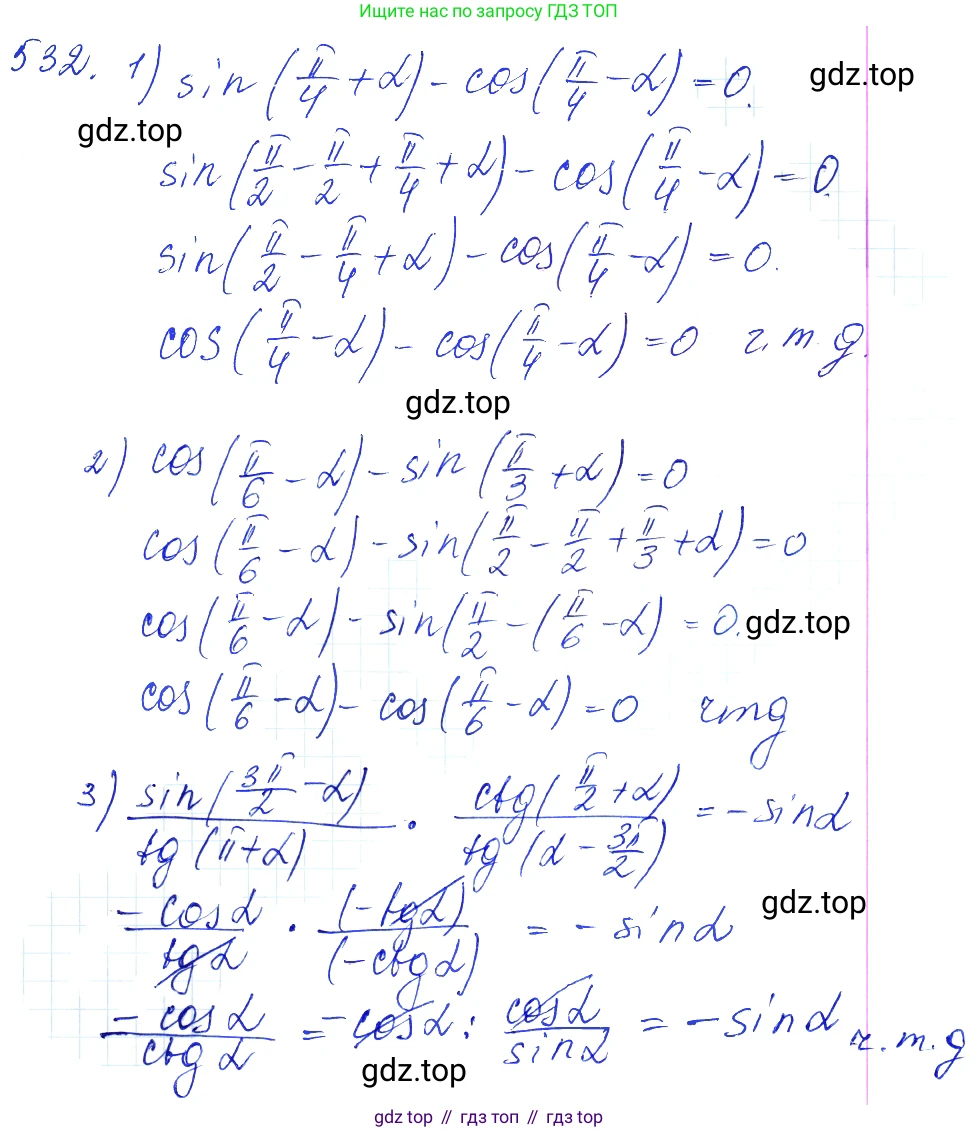 Ищите нас по запросу ГДЗ ТОП
532. 1) sin(π/4 + α) - cos(π/4 - α) = 0.
gdz.top
gdz.top
sin(π/2 - π/2 + π/4 + α) - cos(π/4 - α) = 0.
sin(π/2 - π/4 + α) - cos(π/4 - α) = 0.
cos(π/4 - α) - cos(π/4 - α) = 0 ч.т.д.
gdz.top
2) cos(π/6 - α) - sin(π/3 + α) = 0
cos(π/6 - α) - sin(π/2 - π/2 + π/3 + α) = 0
cos(π/6 - α) - sin(π/2 - (π/6 - α) = 0.
gdz.top
cos(π/6 - α) - cos(π/6 - α) = 0 чтд
3) sin(3π/2 - α)/tg(π + α) · ctg(π/2 + α)/tg(α - 3π/2) = - sinα
gdz.top
- cosα/tgα · (-tgα)/(-ctgα) = - sinα
- cosα/ctgα = - cosα : cosα/sinα = - sinα ч.т.д
gdz.top
gdz.top // гдз топ // gdz top